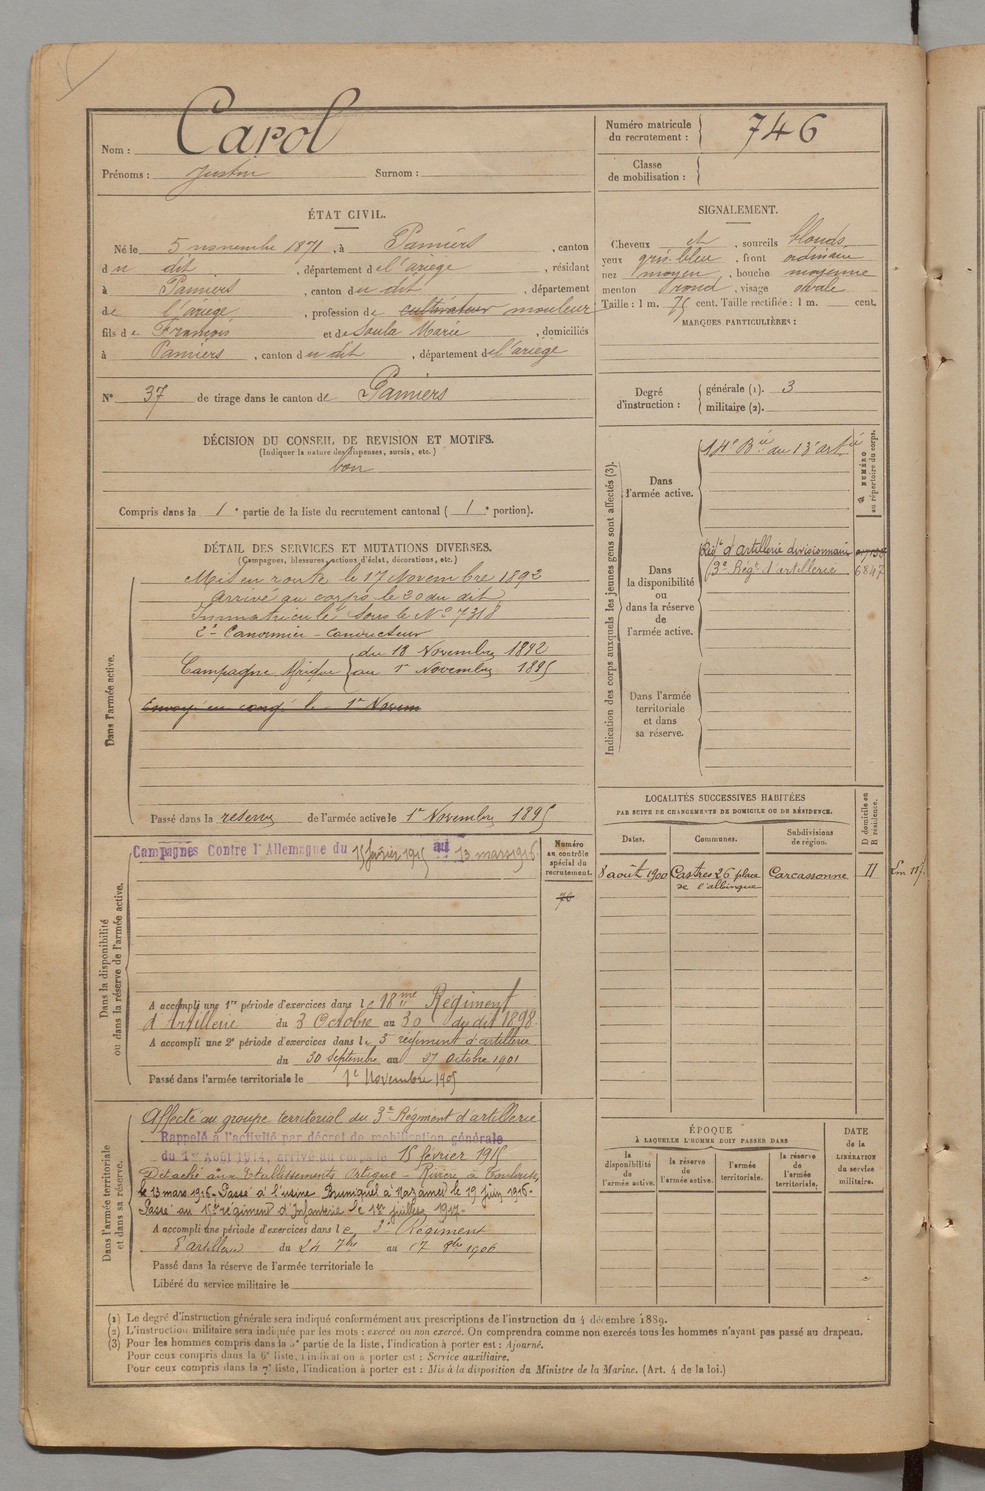 Nom : Carol
Prénoms : Justin Surnom :
Numéro matricule
du recrutement : 746
Classe
de mobilisation :
ÉTAT CIVIL.
Né le 5 novembre 1871, à Pamiers, canton
du dit, département de l'ariège, résidant
à Pamiers, canton du dit, département
de l'ariège, profession de cultivateur mouleur
fils de François et de Soula Marie, domiciliés
à Pamiers, canton du dit, département de l'ariège
N° 37 de tirage dans le canton de Pamiers
SIGNALEMENT.
Cheveux et, sourcils blonds
yeux gris bleu, front ordinaire
nez moyen, bouche moyenne
menton rond, visage ovale
Taille : 1 m. 75 cent. Taille rectifiée : 1 m. cent.
MARQUES PARTICULIÈRES :
Degré
d'instruction :
générale (1). 3
militaire (2).
DÉCISION DU CONSEIL DE REVISION ET MOTIFS.
(Indiquer la nature des dispenses, sursis, etc.)
bon
Compris dans la 1e partie de la liste du recrutement cantonal ( 1e portion).
DÉTAIL DES SERVICES ET MUTATIONS DIVERSES.
(Campagnes, blessures, actions d'éclat, décorations, etc.)
Dans l'armée active.
Mis en route le 17 Novembre 1892
Arrivé au corps le 20 du dit
Immatriculé sous le N° 7318
2e Canonnier - conducteur
Campagne Afrique
du 18 Novembre 1892
au 1er Novembre 1895
Envoyé en congé le 1er Novem
Passé dans la reserve de l'armée active le 1er Novembre 1895
Indication des corps auxquels les jeunes gens sont affectés (3).
NUMÉRO
au répertoire du corps.
Dans
l'armée active.
14e Bie du 13e artie
Dans
la disponibilité
ou
dans la réserve
de
l'armée active.
Régt d'artillerie divisionnaire
3e Régt d'artillerie 6847
Dans l'armée
territoriale
et dans
sa réserve.
Dans la disponibilité
ou dans la réserve de l'armée active.
Campagnes Contre l'Allemagne du 15 février 1915 au 13 mars 1916.
Numéro
au contrôle
spécial du
recrutement.
76
A accompli une 1re période d'exercices dans le 18me Régiment
d'Artillerie du 3 Octobre au 30 du dit 1898.
A accompli une 2e période d'exercices dans le 3 régiment d'artillerie
du 30 septembre au 27 octobre 1901
Passé dans l'armée territoriale le 1er Novembre 1905
LOCALITÉS SUCCESSIVES HABITÉES
PAR SUITE DE CHANGEMENTS DE DOMICILE OU DE RÉSIDENCE.
Dates. Communes. Subdivisions
de région. D domicile ou
R résidence.
8 août 1900 Castres 26 place
de l'albinque Carcassonne
Dans l'armée territoriale
et dans sa réserve.
Affecté au groupe territorial du 3e Régiment d'artillerie
Rappelé à l'activité par décret de mobilisation générale
du 1er Août 1914, arrivé au corps le 15 février 1915
Détaché aux Etablissements Ortigue - Rivière à Toulouse,
le 13 mars 1916. Passé à l'usine Bruniquel à Mazamet le 19 juin 1916.
Passé au 15e régiment d'Infanterie le 1er juillet 1917.
A accompli une période d'exercices dans le 3e Régiment
d'artillerie du 24 7bre au 1906
Passé dans la réserve de l'armée territoriale le
Libéré du service militaire le
ÉPOQUE
À LAQUELLE L'HOMME DOIT PASSER DANS
la
disponibilité
de
l'armée active.
la réserve
de
l'armée active.
l'armée
territoriale.
la réserve
de
l'armée
territoriale.
DATE
de la
LIBÉRATION
du service
militaire.
(1) Le degré d'instruction générale sera indiqué conformément aux prescriptions de l'instruction du 4 décembre 1889.
(2) L'instruction militaire sera indiquée par les mots : exercé ou non exercé. On comprendra comme non exercés tous les hommes n'ayant pas passé au drapeau.
(3) Pour les hommes compris dans la 5e partie de la liste, l'indication à porter est : Ajourné.
Pour ceux compris dans la 6e liste, l'indication à porter est : Service auxiliaire.
Pour ceux compris dans la 7e liste, l'indication à porter est : Mis à la disposition du Ministre de la Marine. (Art. 4 de la loi.)